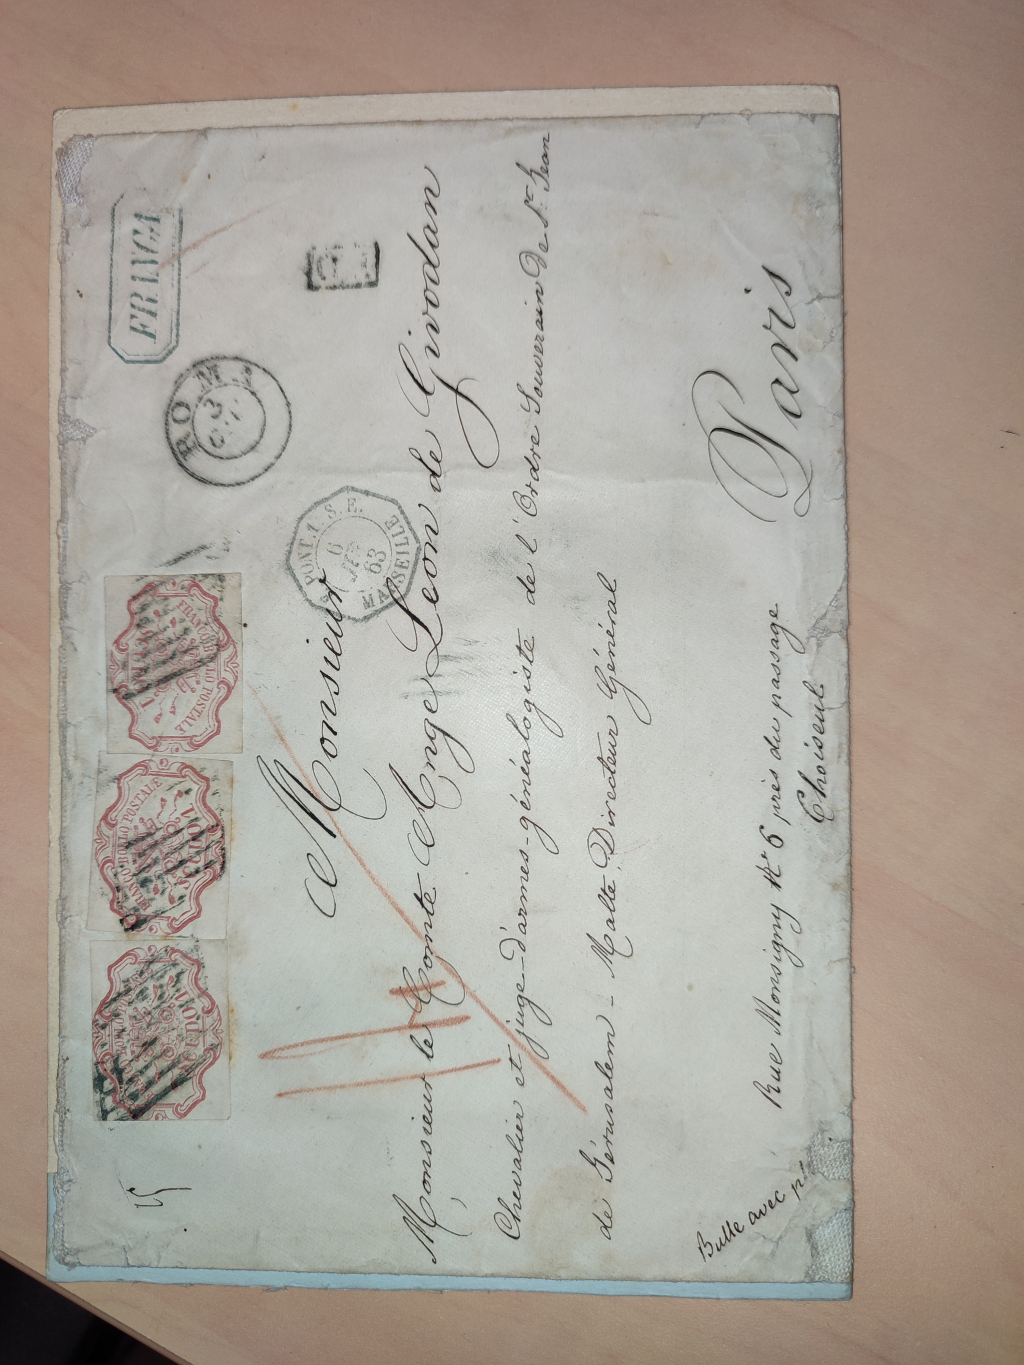 15
FRANCO BOLLO POSTALE
FRANCO BOLLO POSTALE
FRANCA
ROMA
3
PONT. 1. S. E.
6
63
MARSEILLE
Monsieur
Monsieur le Comte Ange Léon de Givodan
Chevalier et juge-d'armes-généalogiste de l'Ordre Souverain De St Jean
de Jérusalem - Malte, Directeur Général
Paris
Rue Monsigny No 6 près du passage
Choiseul.
Bulle avec